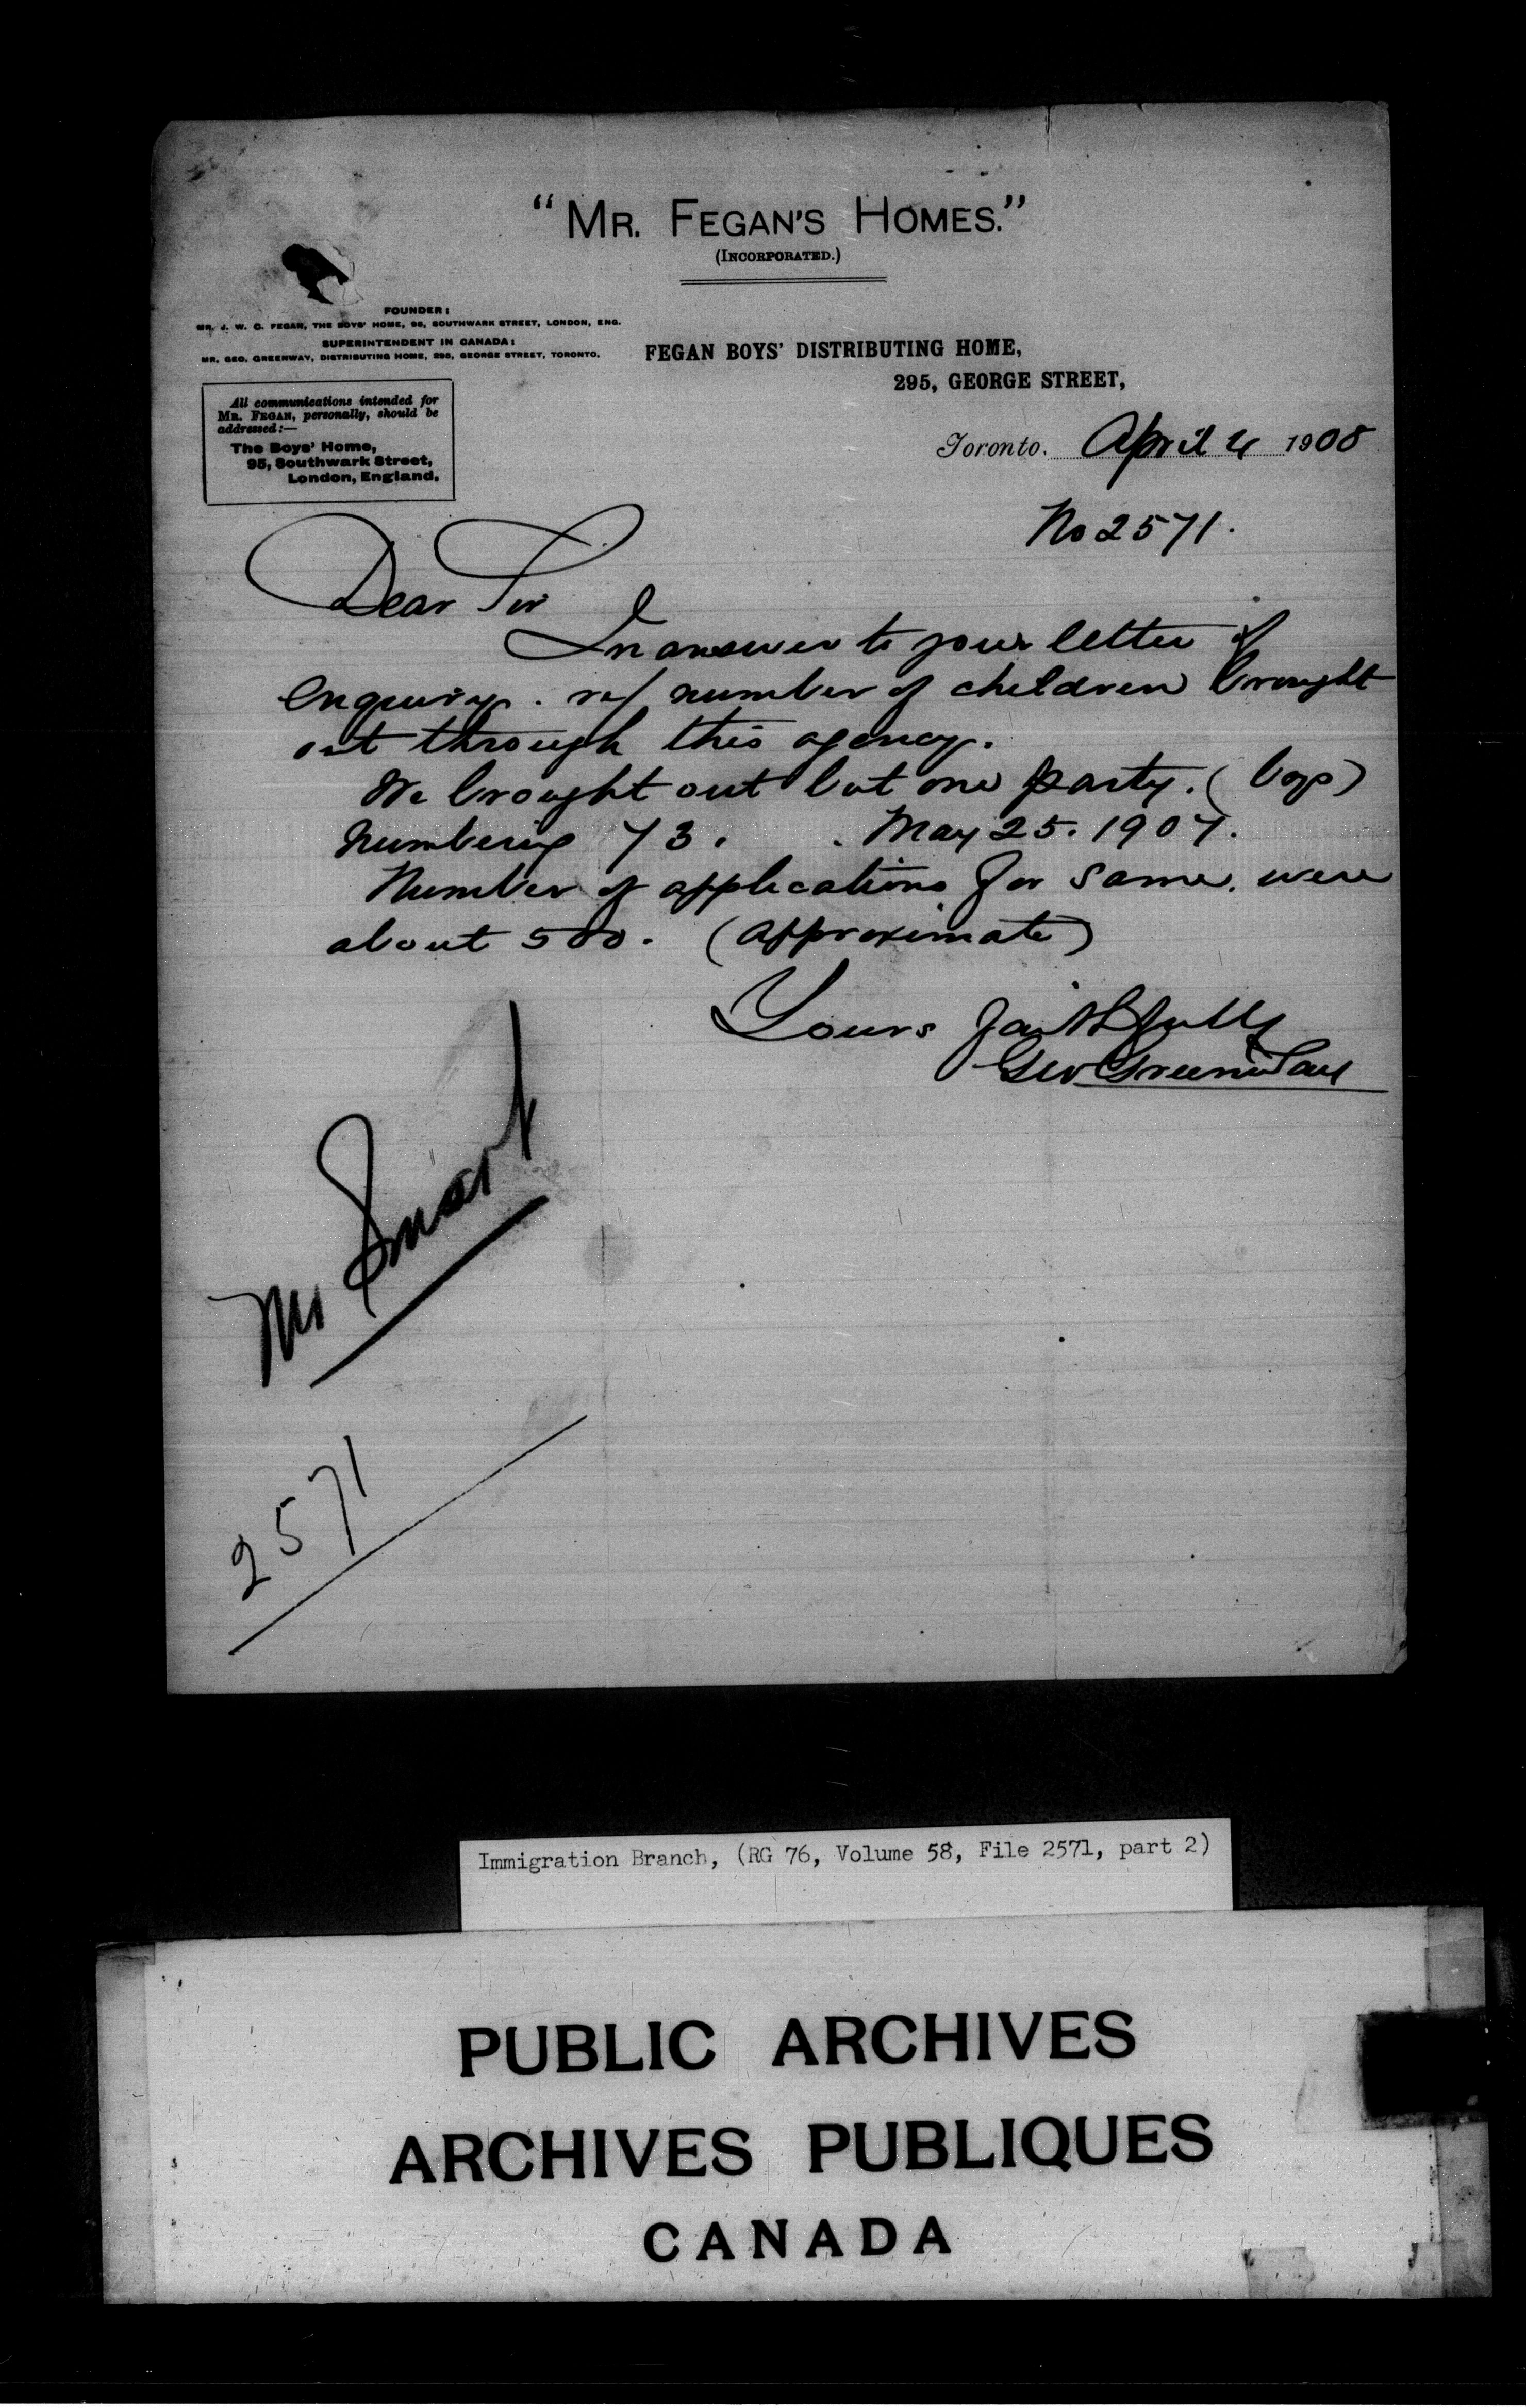 “MR. FEGAN'S HOMES.”
(INCORPORATED.)
FOUNDER:
MR. J. W. C. FEGAN, THE BOYS' HOME, 95, SOUTHWARK STREET, LONDON, ENG.
SUPERINTENDENT IN CANADA:
MR. GEO. GREENWAY, DISTRIBUTING HOME, 295, GEORGE STREET, TORONTO.
FEGAN BOYS' DISTRIBUTING HOME,
295, GEORGE STREET,
All communications intended for
MR. FEGAN, personally, should be
addressed:—
The Boys' Home,
95, Southwark Street,
London, England.
Toronto. April 4 1908
No 2571.
Dear Sir
In answer to your letter of
enquiry. ref number of children brought
out through this agency.
We brought out but one party. (boys)
numbering 73. . May 25. 1907.
Number of applications for same. were
about 500. (approximate)
Yours faithfully
Geo Greenway
Mr Smart
2571
Immigration Branch, (RG 76, Volume 58, File 2571, part 2)
PUBLIC ARCHIVES
ARCHIVES PUBLIQUES
CANADA